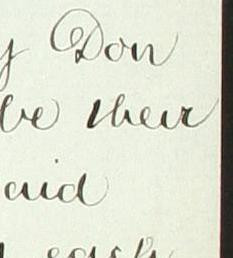 y Don
be their
aid
each